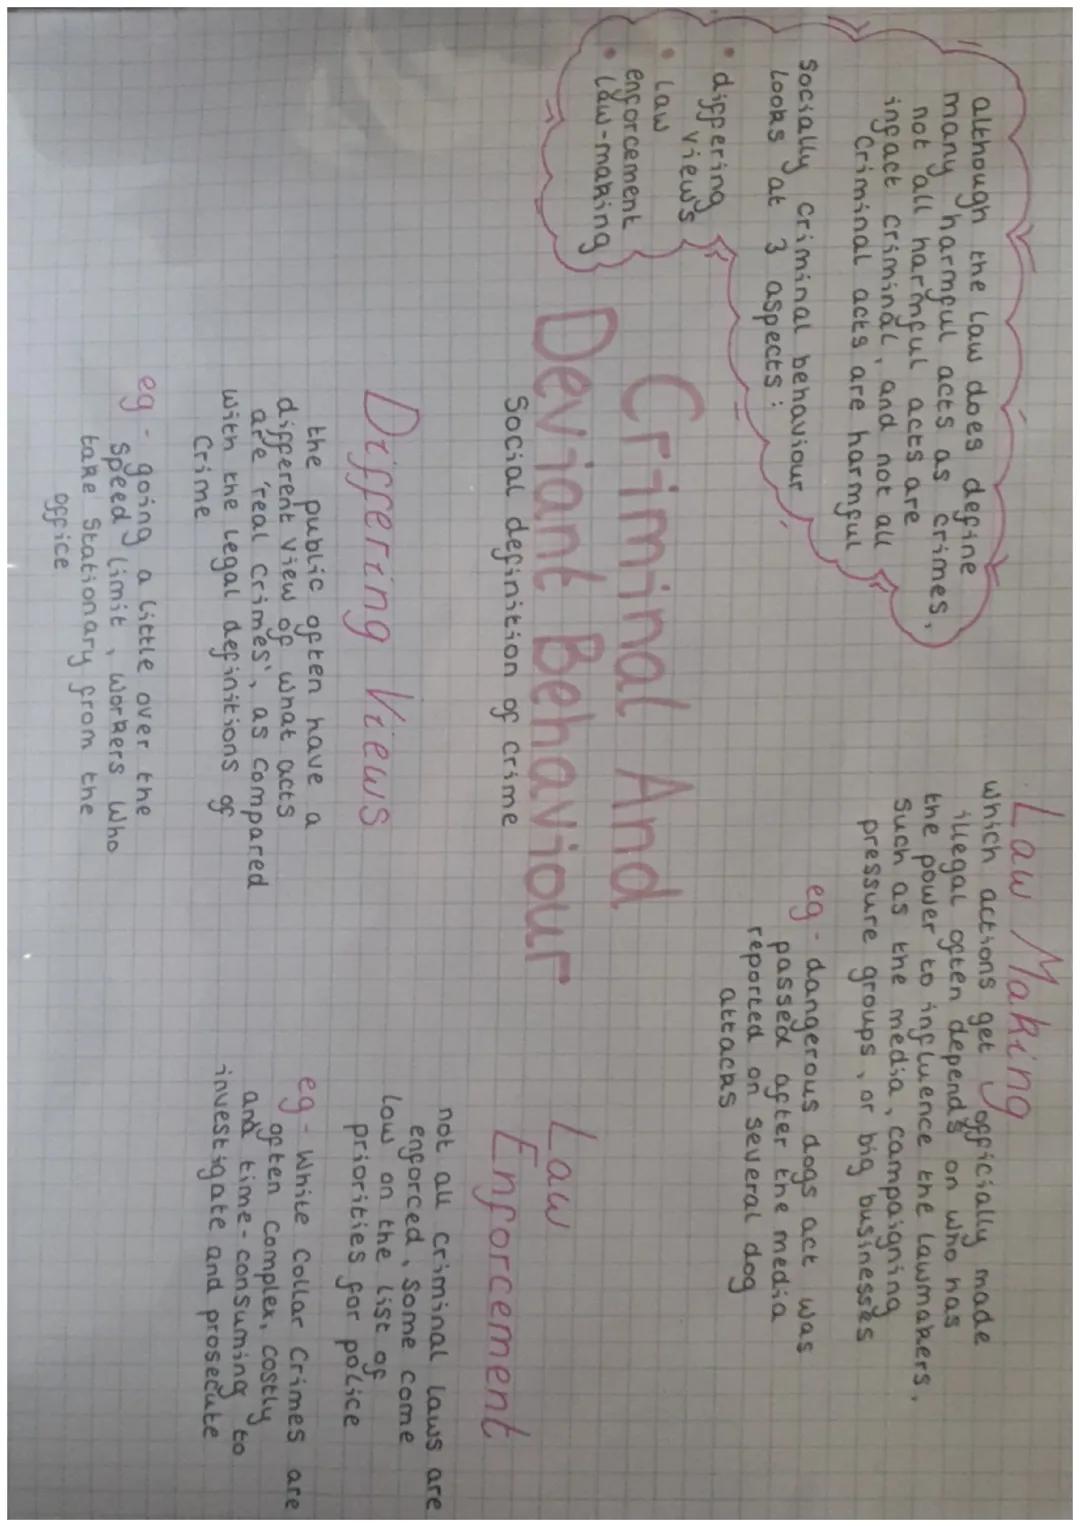 although the law does define
many harmful acts as crimes,
not all harmful acts are
infact criminal, and not all
Criminal acts are harmful
socially criminal behaviour
looks at 3 aspects:
• differing
views
• law
enforcement
• law-making
Law Making
which actions get officially made
illegal often depends on who has
the power to influence the lawmakers,
such as the media, campaigning
pressure groups, or big businesses
eg - dangerous dogs act was
passed after the media
reported on several dog
attacks
Criminal And
Deviant Behaviour
Social definition of crime
Differing Views
the public often have a
different view of what acts
are 'real crimes', as compared
with the legal definitions of
Crime
eg - going a little over the
speed limit, workers who
take stationary from the
office
Law
Enforcement
not all criminal laws are
enforced, some come
low on the list of
priorities for police
eg - White Collar Crimes are
often complex, costly
and time-consuming to
investigate and prosecute